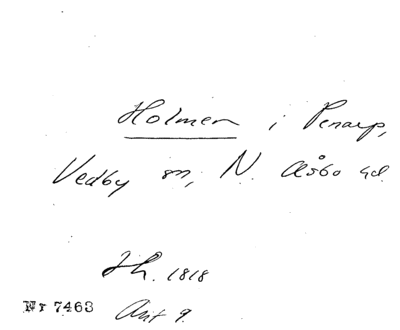 Holmen i Penarp,
Vedby sn, N. Åsbo hd.
Jh. 1818
Nr 7463 Ant 9.